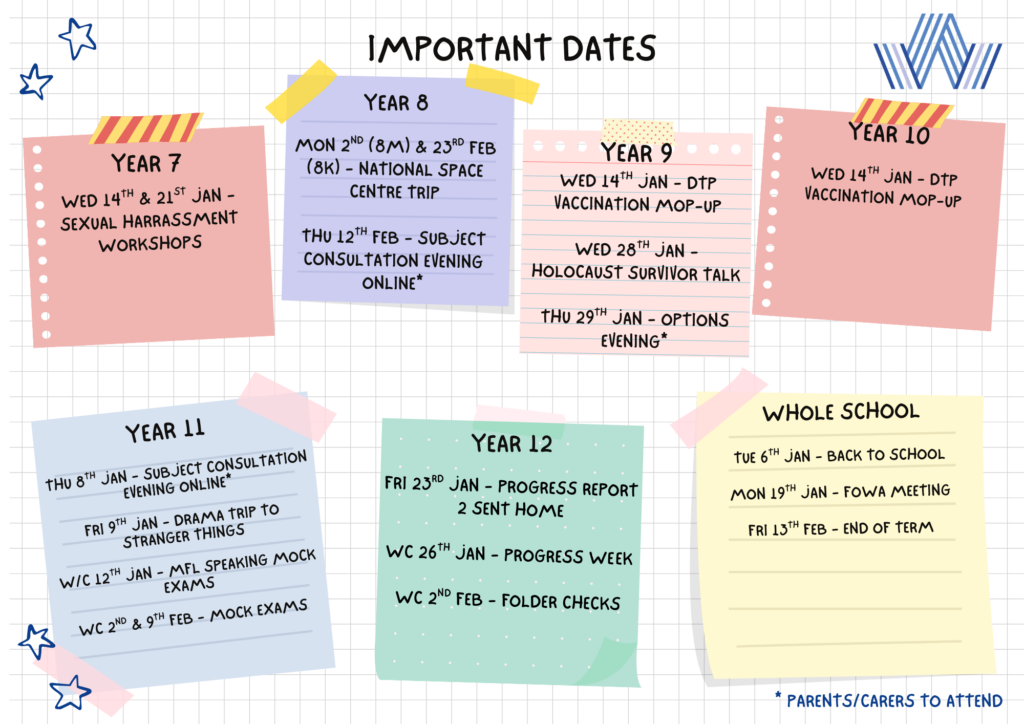 IMPORTANT DATES
YEAR 7
WED 14TH & 21ST JAN -
SEXUAL HARRASSMENT
WORKSHOPS
YEAR 8
MON 2ND (8M) & 23RD FEB
(8K) - NATIONAL SPACE
CENTRE TRIP
THU 12TH FEB - SUBJECT
CONSULTATION EVENING
ONLINE*
YEAR 9
WED 14TH JAN - DTP
VACCINATION MOP-UP
WED 28TH JAN -
HOLOCAUST SURVIVOR TALK
THU 29TH JAN - OPTIONS
EVENING*
YEAR 10
WED 14TH JAN - DTP
VACCINATION MOP-UP
YEAR 11
THU 8TH JAN - SUBJECT CONSULTATION
EVENING ONLINE*
FRI 9TH JAN - DRAMA TRIP TO
STRANGER THINGS
W/C 12TH JAN - MFL SPEAKING MOCK
EXAMS
WC 2ND & 9TH FEB - MOCK EXAMS
YEAR 12
FRI 23RD JAN - PROGRESS REPORT
2 SENT HOME
WC 26TH JAN - PROGRESS WEEK
WC 2ND FEB - FOLDER CHECKS
WHOLE SCHOOL
TUE 6TH JAN - BACK TO SCHOOL
MON 19TH JAN - FOWA MEETING
FRI 13TH FEB - END OF TERM
* PARENTS/CARERS TO ATTEND